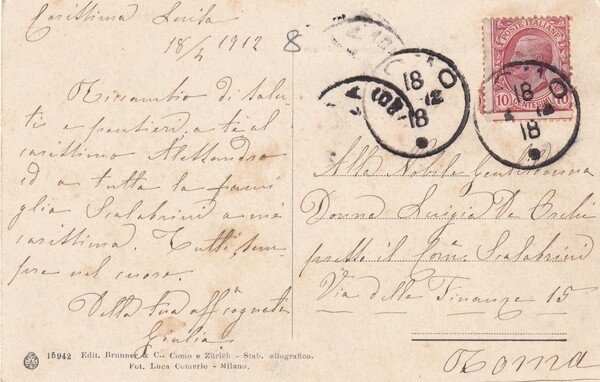 Carissima Luisa
18/4 1912
8
Ricambio di salu-
ti e pensieri, a te al
carissimo Alessandro
ed a tutta la fami
glia Scalabrini a me
carissima. Tutti, sem-
pre nel cuore.
Della tua aff.ª cognata
Giulia
15942 Edit. Brunner & C., Como e Zürich - Stab. eliografico.
Fot. Luca Comerio - Milano.
POSTE ITALIANE
10 CENTESIMI 10
COMO
18
12
18
COMO
18
12
18
Alla Nobile Gentildonna
Donna Luigia De Orchi
presso il Com. Scalabrini
Via delle Finanze 15
Roma